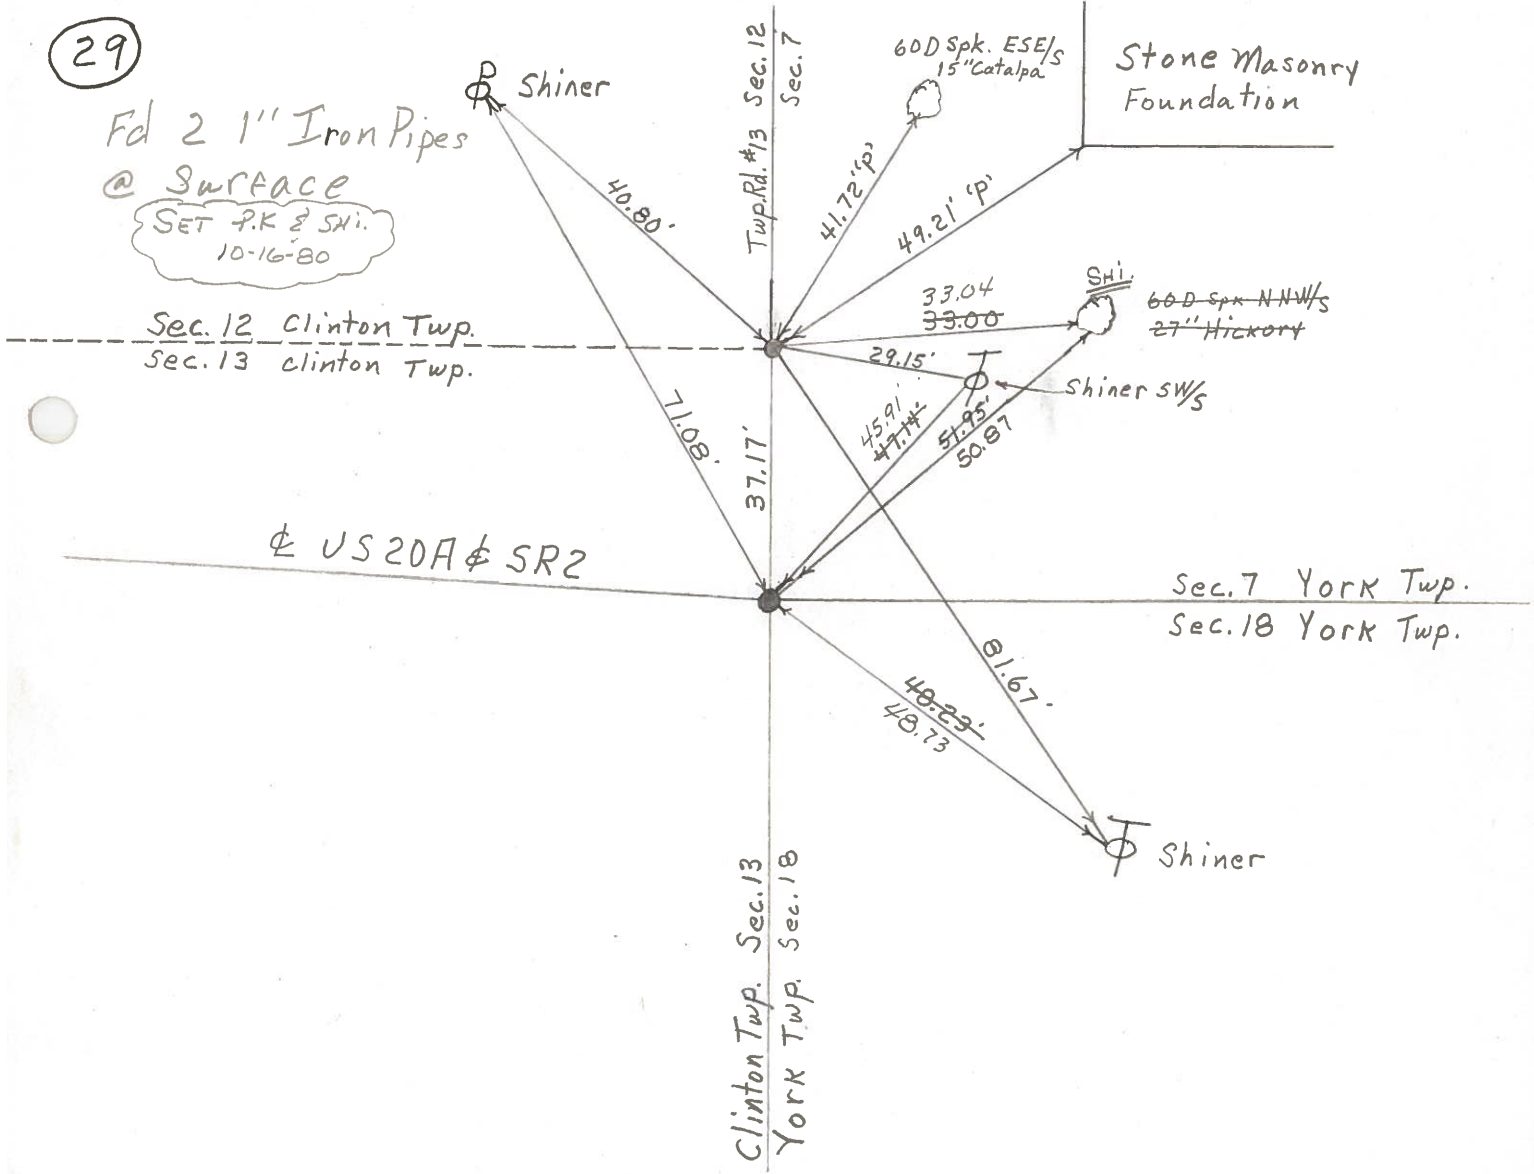 29
Fd 2 1" Iron Pipes
@ Surface
SET P.K & SHi.
10-16-80
Shiner
Twp. Rd. #13 Sec. 12
Sec. 7
60D Spk. ESE/S
15" Catalpa
Stone Masonry
Foundation
40.80'
41.72' "p"
49.21' 'p'
SHi.
60D Spk NNW/S
27" Hickory
33.04
33.00
29.15'
Shiner SW/S
Sec. 12 Clinton Twp.
Sec. 13 Clinton Twp.
71.08'
37.17'
45.91'
47.14'
51.95'
50.87
℄ US 20A & SR2
Sec. 7 York Twp.
Sec. 18 York Twp.
81.67'
48.23'
48.73
Shiner
Clinton Twp. Sec. 13
York Twp. Sec. 18